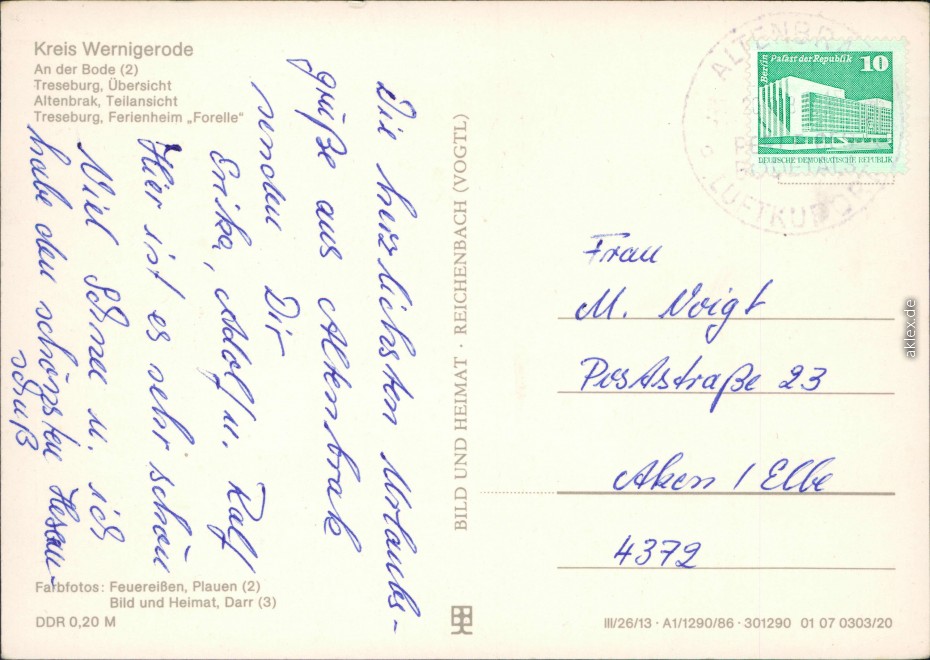 Kreis Wernigerode
An der Bode (2)
Treseburg, Übersicht
Altenbrak, Teilansicht
Treseburg, Ferienheim „Forelle“
Die herzlichsten Urlaubs-
grüße aus Altenbrak
senden Dir
Erika, Adolf u. Ralf
Hier ist es sehr schön
Viel Schnee u. ich
habe den schönsten Hexen-
schuß
Farbfotos: Feuereißen, Plauen (2)
Bild und Heimat, Darr (3)
DDR 0,20 M
BILD UND HEIMAT · REICHENBACH (VOGTL)
ALTENBRA
LUFTKURO
Berlin Palast der Republik
10
DEUTSCHE DEMOKRATISCHE REPUBLIK
Frau
M. Voigt
Poststraße 23
Aken / Elbe
4372
III/26/13 · A1/1290/86 · 301290 01 07 0303/20
aklex.de